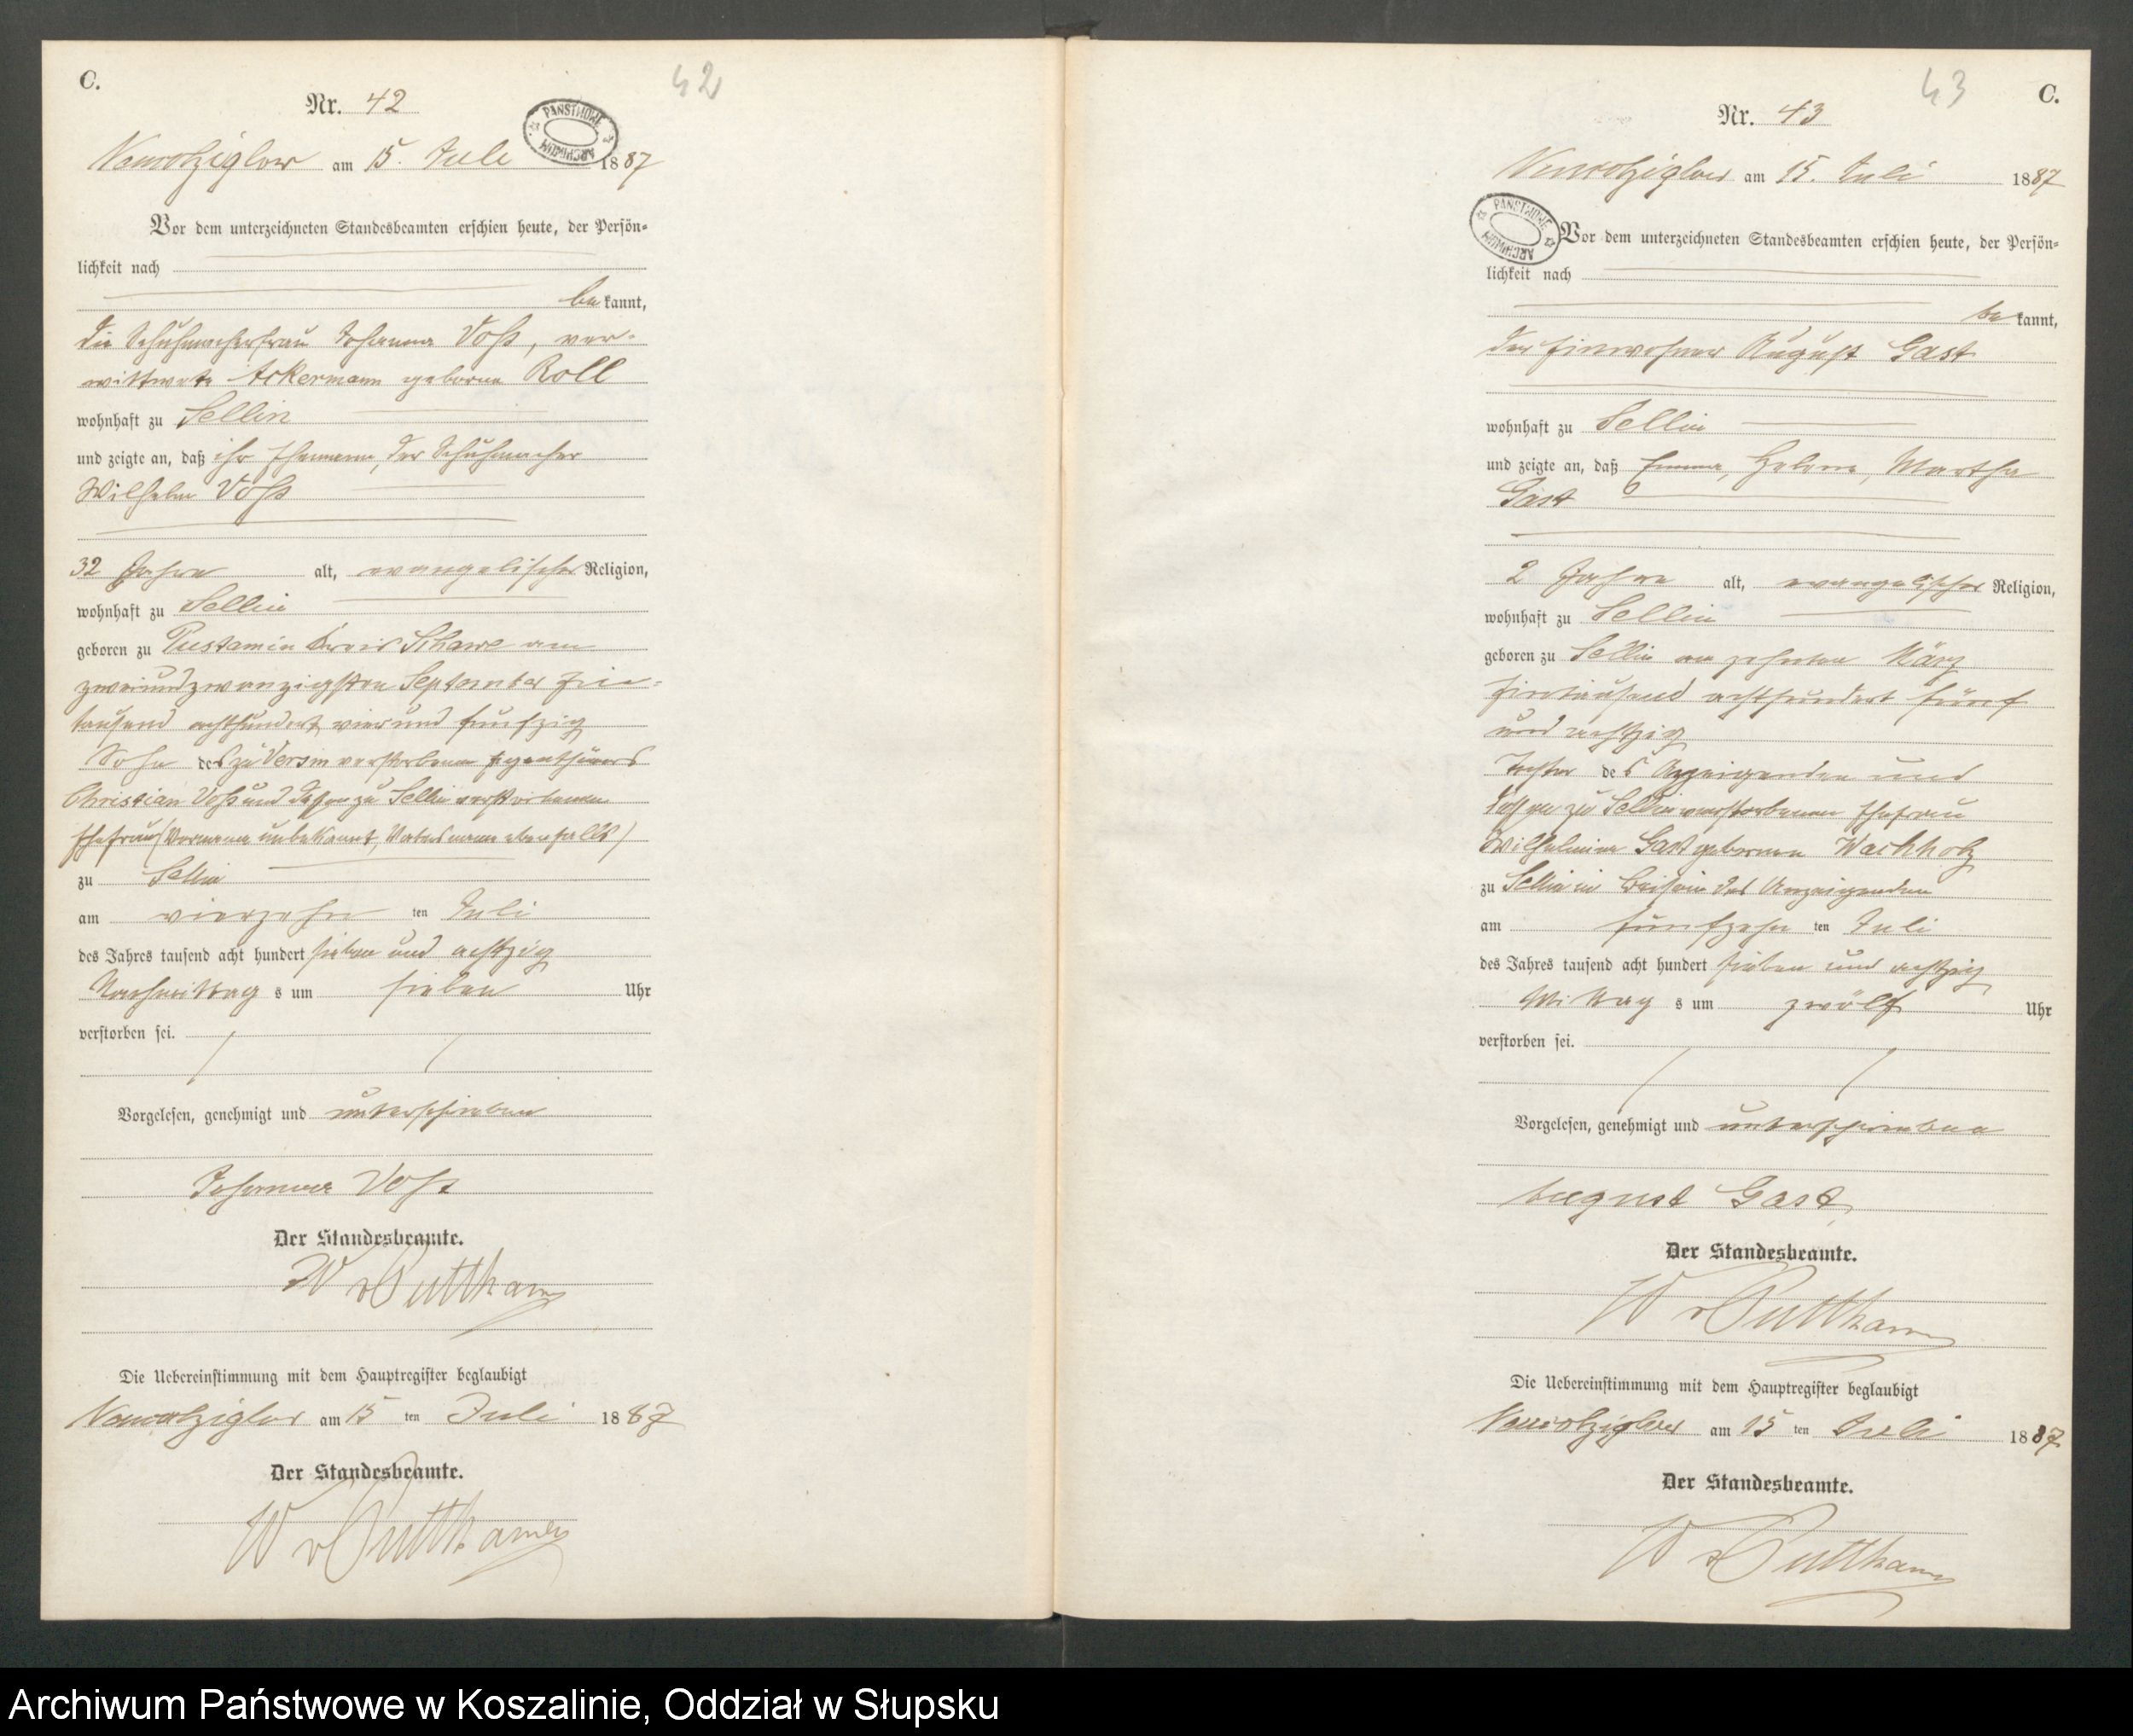 C.
42
Nr. 42
PAŃSTWOWE ARCHIWUM
am 15. Juli 1887
Vor dem unterzeichneten Standesbeamten erschien heute, der Persön-
lichkeit nach
be kannt,
die Schuhmacherfrau Johanna Voß, ver-
wittwete Ackermann geborne Roll
wohnhaft zu Sellin
und zeigte an, daß ihr Ehemann, der Schuhmacher
Wilhelm Voß
32 Jahre alt, evangelischer Religion,
wohnhaft zu Sellin
geboren zu Pustamin Kreis Schlawe am
zweiundzwanzigsten September Ein-
tausend achthundert vier und funfzig
Sohn des zu Versin verstorbenen Eigenthümers
Christian Voß und dessen zu Sellin verstorbenen
Ehefrau (Vorname unbekannt, Vatersname ebenfalls)
zu Sellin
am vierzehn ten Juli
des Jahres tausend acht hundert sieben und achtzig
Nachmittag s um sieben Uhr
verstorben sei.
Vorgelesen, genehmigt und unterschrieben
Johanna Voß
Der Standesbeamte.
W v Puttkamer
Die Uebereinstimmung mit dem Hauptregister beglaubigt
am 15 ten Juli 1887
Der Standesbeamte.
W v Puttkamer
43
C.
Nr. 43
am 15. Juli 1887
PAŃSTWOWE ARCHIWUM
Vor dem unterzeichneten Standesbeamten erschien heute, der Persön-
lichkeit nach
be kannt,
der Einwohner August Gast
wohnhaft zu Sellin
und zeigte an, daß Emma, Helene, Martha
Gast
2 Jahre alt, evangelischer Religion,
wohnhaft zu Sellin
geboren zu Sellin am zehnten März
Eintausend achthundert fünf
und achtzig
Tochter des Anzeigenden und
dessen zu Sellin verstorbenen Ehefrau
Wilhelmine Gast gebornen Wachholz
zu Sellin in Beisein des Anzeigenden
am funfzehn ten Juli
des Jahres tausend acht hundert sieben und achtzig
Mittag s um zwölf Uhr
verstorben sei.
Vorgelesen, genehmigt und unterschrieben
August Gast
Der Standesbeamte.
W v Puttkamer
Die Uebereinstimmung mit dem Hauptregister beglaubigt
am 15 ten Juli 1887
Der Standesbeamte.
W v Puttkamer
Archiwum Państwowe w Koszalinie, Oddział w Słupsku